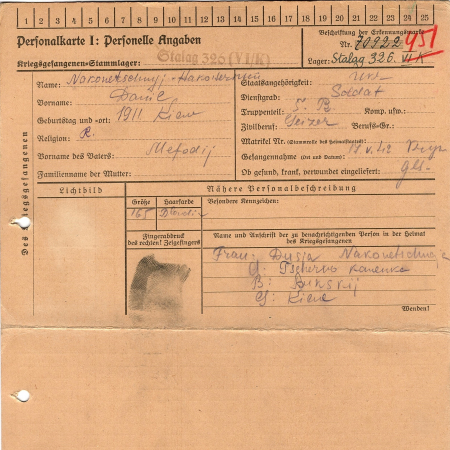 1 2 3 4 5 6 7 8 9 10 11 12 13 14 15 16 17 18 19 20 21 22 23 24 25
Personalkarte I: Personelle Angaben
Kriegsgefangenen-Stammlager: Stalag 326 (VI/K)
Beschriftung der Erkennungsmarke
Nr. 70922 451
Lager: Stalag 326. VI K
Des Kriegsgefangenen
Name: Nakonetschnyj
Vorname: Danil
Geburtstag und -ort: 1911 Kiew
Religion: R.
Vorname des Vaters: Mefodij
Familienname der Mutter:
Staatsangehörigkeit:
Dienstgrad: Soldat
Truppenteil: Komp. usw.:
Zivilberuf: Heizer Berufs-Gr.:
Matrikel Nr. (Stammrolle des Heimatstaates)
Gefangennahme (Ort und Datum): 17 V. 42
Ob gesund, krank, verwundet eingeliefert:
Lichtbild
Nähere Personalbeschreibung
Größe Haarfarbe Besondere Kennzeichen:
165
Fingerabdruck
des rechten! Zeigefingers
Name und Anschrift der zu benachrichtigenden Person in der Heimat
des Kriegsgefangenen
Frau: Dusja Nakonetschnaja
G: Kiew
Wenden!